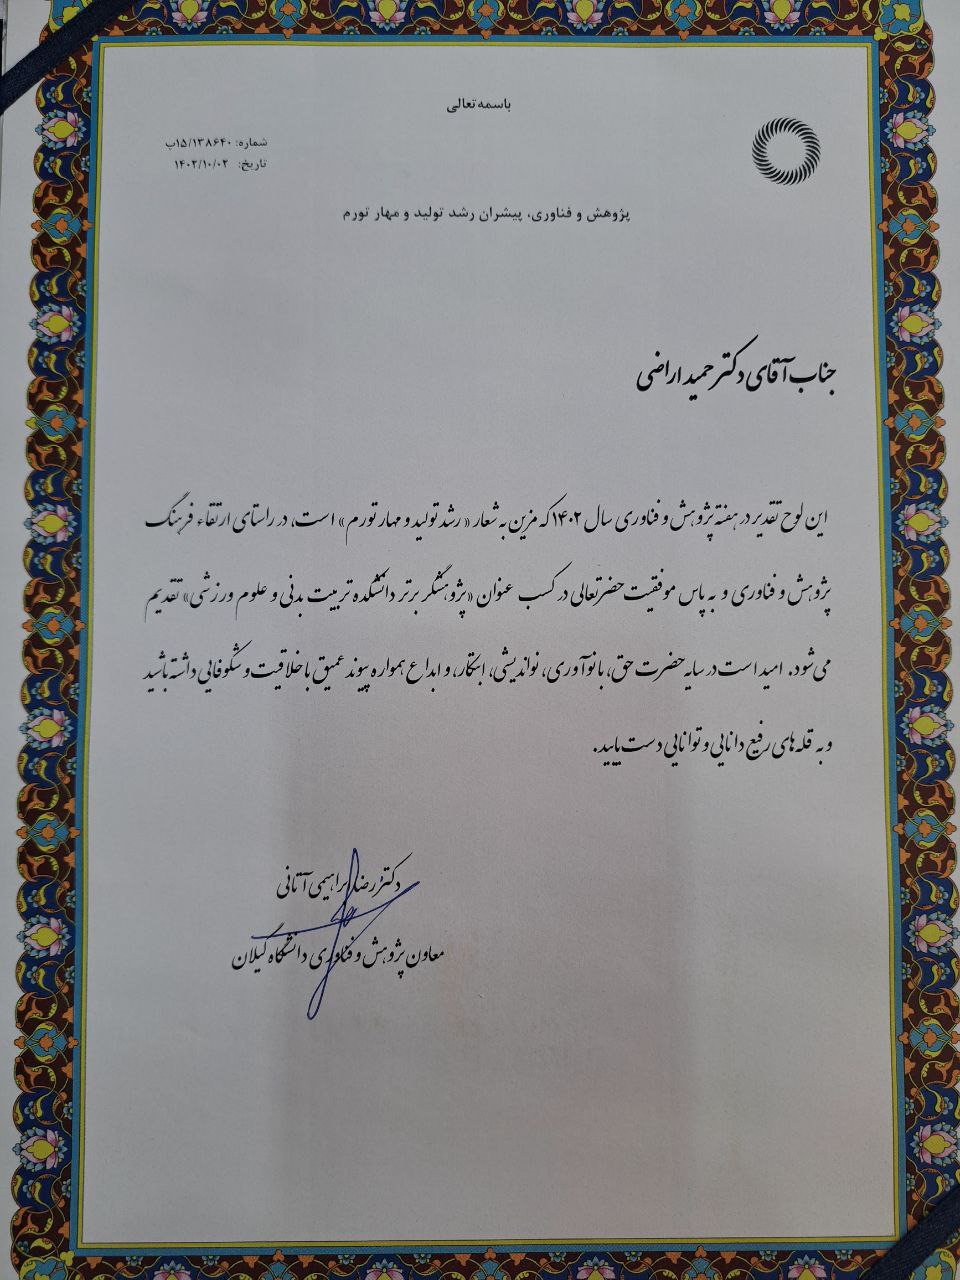 باسمه تعالی
شماره: ۱۵/۱۳۸۶۴۰پ
تاریخ: ۱۴۰۲/۱۰/۰۲
پژوهش و فناوری، پیشران رشد تولید و مهار تورم
جناب آقای دکتر حمید اراضی
این لوح تقدیر در هفته پژوهش و فناوری سال ۱۴۰۲ که مزین به شعار «رشد تولید و مهار تورم» است، در راستای ارتقاء فرهنگ
پژوهش و فناوری و به پاس موفقیت حضرتعالی در کسب عنوان «پژوهشگر برتر دانشکده تربیت بدنی و علوم ورزشی» تقدیم
می‌شود. امید است در سایه حضرت حق، با نوآوری، نواندیشی، ابتکار، و ابداع همواره پیوند عمیق با خلاقیت و شکوفایی داشته باشید
و به قله های رفیع دانایی و توانایی دست یابید.
دکتر رضا ابراهیمی آتانی
معاون پژوهش و فناوری دانشگاه گیلان